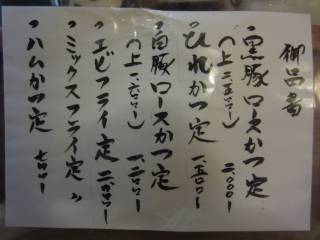 御品書
黒豚ロースかつ定 二〇〇〇
(上二五〇〇)
ひれかつ定 一五〇〇
白豚ロースかつ定 一二〇〇
(上一六〇〇)
エビフライ定 二〇〇〇
ミックスフライ定 〃
ハムかつ定 七〇〇